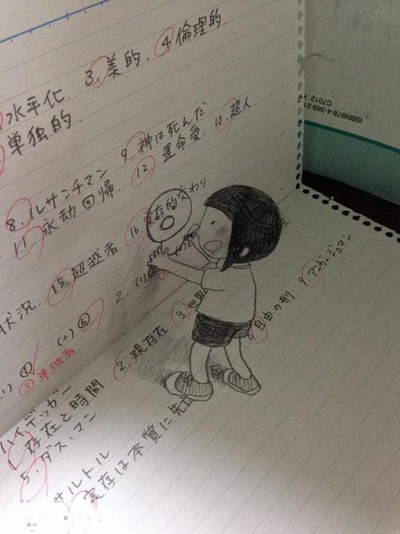 3. 美的. 4 倫理的.
水平化.
単独的.
9. 神は死んだ 13. 超人
8. ルサンチマン 12. 運命愛
11. 永劫回帰
16 実存的交わり
15. 超越者
状況
2.
③ 単独者
ハイデッガー 2. 現存在 3. 世界
1. 存在と時間
5. ダス・マン
サルトル 自由の刑 9. アンガージュマン
実存は本質に先
ISBN978-4-389-21
C7012